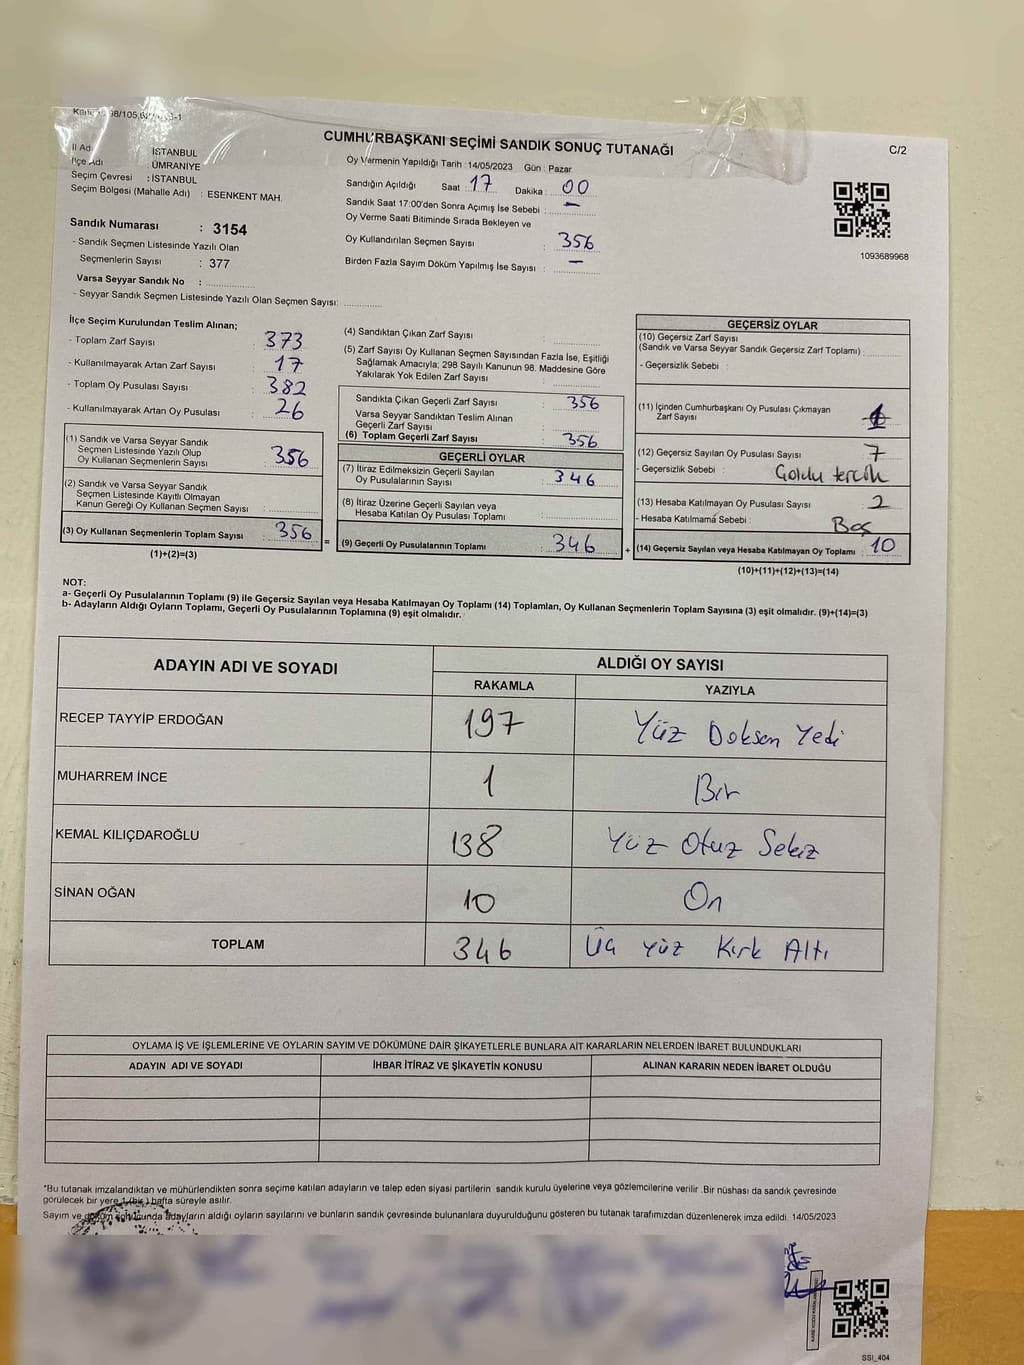 CUMHURBAŞKANI SEÇİMİ SANDIK SONUÇ TUTANAĞI
C/2
İl Adı : İSTANBUL
İlçe Adı : ÜMRANİYE
Seçim Çevresi : İSTANBUL
Seçim Bölgesi (Mahalle Adı) : ESENKENT MAH.
Sandık Numarası : 3154
- Sandık Seçmen Listesinde Yazılı Olan
Seçmenlerin Sayısı : 377
Varsa Seyyar Sandık No :
- Seyyar Sandık Seçmen Listesinde Yazılı Olan Seçmen Sayısı:
Oy Vermenin Yapıldığı Tarih : 14/05/2023 Gün : Pazar
Sandığın Açıldığı Saat : 17 Dakika : 00
Sandık Saat 17:00'den Sonra Açımış İse Sebebi : –
Oy Verme Saati Bitiminde Sırada Bekleyen ve
Oy Kullandırılan Seçmen Sayısı : 356
Birden Fazla Sayım Döküm Yapılmış İse Sayısı : –
1093689968
İlçe Seçim Kurulundan Teslim Alınan;
- Toplam Zarf Sayısı : 373
- Kullanılmayarak Artan Zarf Sayısı : 17
- Toplam Oy Pusulası Sayısı : 382
- Kullanılmayarak Artan Oy Pusulası : 26
(1) Sandık ve Varsa Seyyar Sandık
Seçmen Listesinde Yazılı Olup
Oy Kullanan Seçmenlerin Sayısı : 356
(2) Sandık ve Varsa Seyyar Sandık
Seçmen Listesinde Kayıtlı Olmayan
Kanun Gereği Oy Kullanan Seçmen Sayısı :
(3) Oy Kullanan Seçmenlerin Toplam Sayısı : 356
(1)+(2)=(3)
(4) Sandıktan Çıkan Zarf Sayısı :
(5) Zarf Sayısı Oy Kullanan Seçmen Sayısından Fazla İse, Eşitliği
Sağlamak Amacıyla, 298 Sayılı Kanunun 98. Maddesine Göre
Yakılarak Yok Edilen Zarf Sayısı :
Sandıkta Çıkan Geçerli Zarf Sayısı : 356
Varsa Seyyar Sandıktan Teslim Alınan
Geçerli Zarf Sayısı :
(6) Toplam Geçerli Zarf Sayısı : 356
GEÇERLİ OYLAR
(7) İtiraz Edilmeksizin Geçerli Sayılan
Oy Pusulalarının Sayısı : 346
(8) İtiraz Üzerine Geçerli Sayılan veya
Hesaba Katılan Oy Pusulası Toplamı :
= (9) Geçerli Oy Pusulalarının Toplamı : 346 +
GEÇERSİZ OYLAR
(10) Geçersiz Zarf Sayısı
(Sandık ve Varsa Seyyar Sandık Geçersiz Zarf Toplamı) :
- Geçersizlik Sebebi :
(11) İçinden Cumhurbaşkanı Oy Pusulası Çıkmayan
Zarf Sayısı : 1
(12) Geçersiz Sayılan Oy Pusulası Sayısı : 7
- Geçersizlik Sebebi : tercih
(13) Hesaba Katılmayan Oy Pusulası Sayısı : 2
- Hesaba Katılmama Sebebi : Boş
(14) Geçersiz Sayılan veya Hesaba Katılmayan Oy Toplamı : 10
(10)+(11)+(12)+(13)=(14)
NOT:
a- Geçerli Oy Pusulalarının Toplamı (9) ile Geçersiz Sayılan veya Hesaba Katılmayan Oy Toplamı (14) Toplamları, Oy Kullanan Seçmenlerin Toplam Sayısına (3) eşit olmalıdır. (9)+(14)=(3)
b- Adayların Aldığı Oyların Toplamı, Geçerli Oy Pusulalarının Toplamına (9) eşit olmalıdır.
ADAYIN ADI VE SOYADI
ALDIĞI OY SAYISI
RAKAMLA YAZIYLA
RECEP TAYYİP ERDOĞAN 197 Yüz Doksan Yedi
MUHARREM İNCE 1 Bir
KEMAL KILIÇDAROĞLU 138 Yüz Otuz Sekiz
SİNAN OĞAN 10 On
TOPLAM 346 Üç Yüz Kırk Altı
OYLAMA İŞ VE İŞLEMLERİNE VE OYLARIN SAYIM VE DÖKÜMÜNE DAİR ŞİKAYETLERLE BUNLARA AİT KARARLARIN NELERDEN İBARET BULUNDUKLARI
ADAYIN ADI VE SOYADI İHBAR İTİRAZ VE ŞİKAYETİN KONUSU ALINAN KARARIN NEDEN İBARET OLDUĞU
*Bu tutanak imzalandıktan ve mühürlendikten sonra seçime katılan adayların ve talep eden siyasi partilerin sandık kurulu üyelerine veya gözlemcilerine verilir .Bir nüshası da sandık çevresinde
görülecek bir yere 1 (bir ) hafta süreyle asılır.
Sayım ve döküm sonucunda adayların aldığı oyların sayılarını ve bunların sandık çevresinde bulunanlara duyurulduğunu gösteren bu tutanak tarafımızdan düzenlenerek imza edildi. 14/05/2023
SSI_404